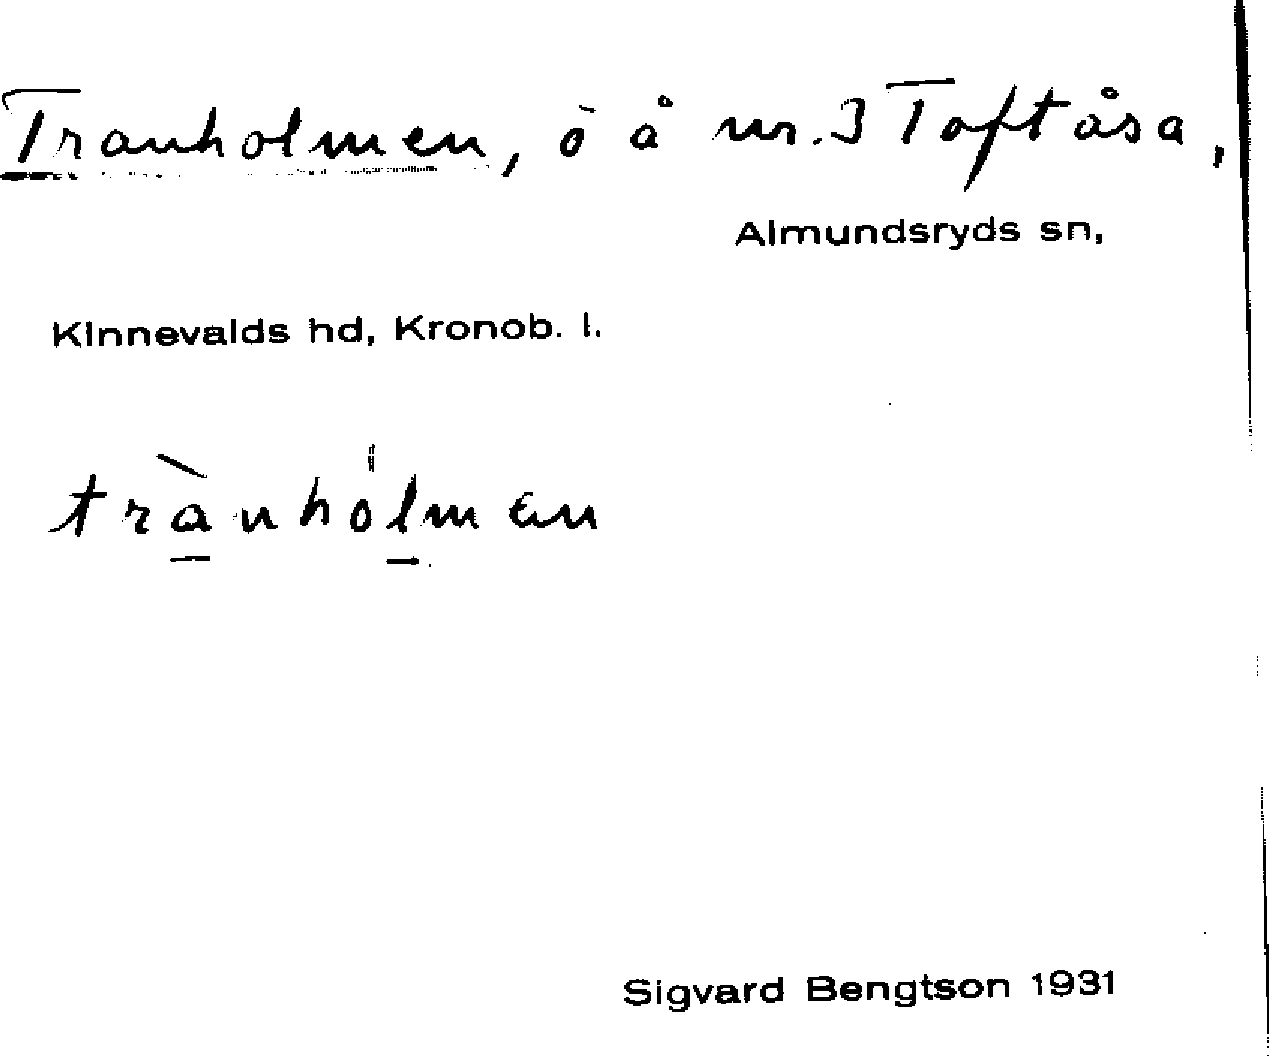 Tranholmen, ö å nr. 3 Toftåsa,
Almundsryds sn,
Kinnevalds hd, Kronob. l.
trànhólmɛn
Sigvard Bengtson 1931